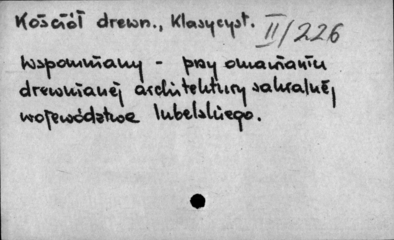 Kościół drewn., Klasycyst. II/226
Wspomniany - przy omawianiu
drewnianej architektury sakralnej
województwa lubelskiego.